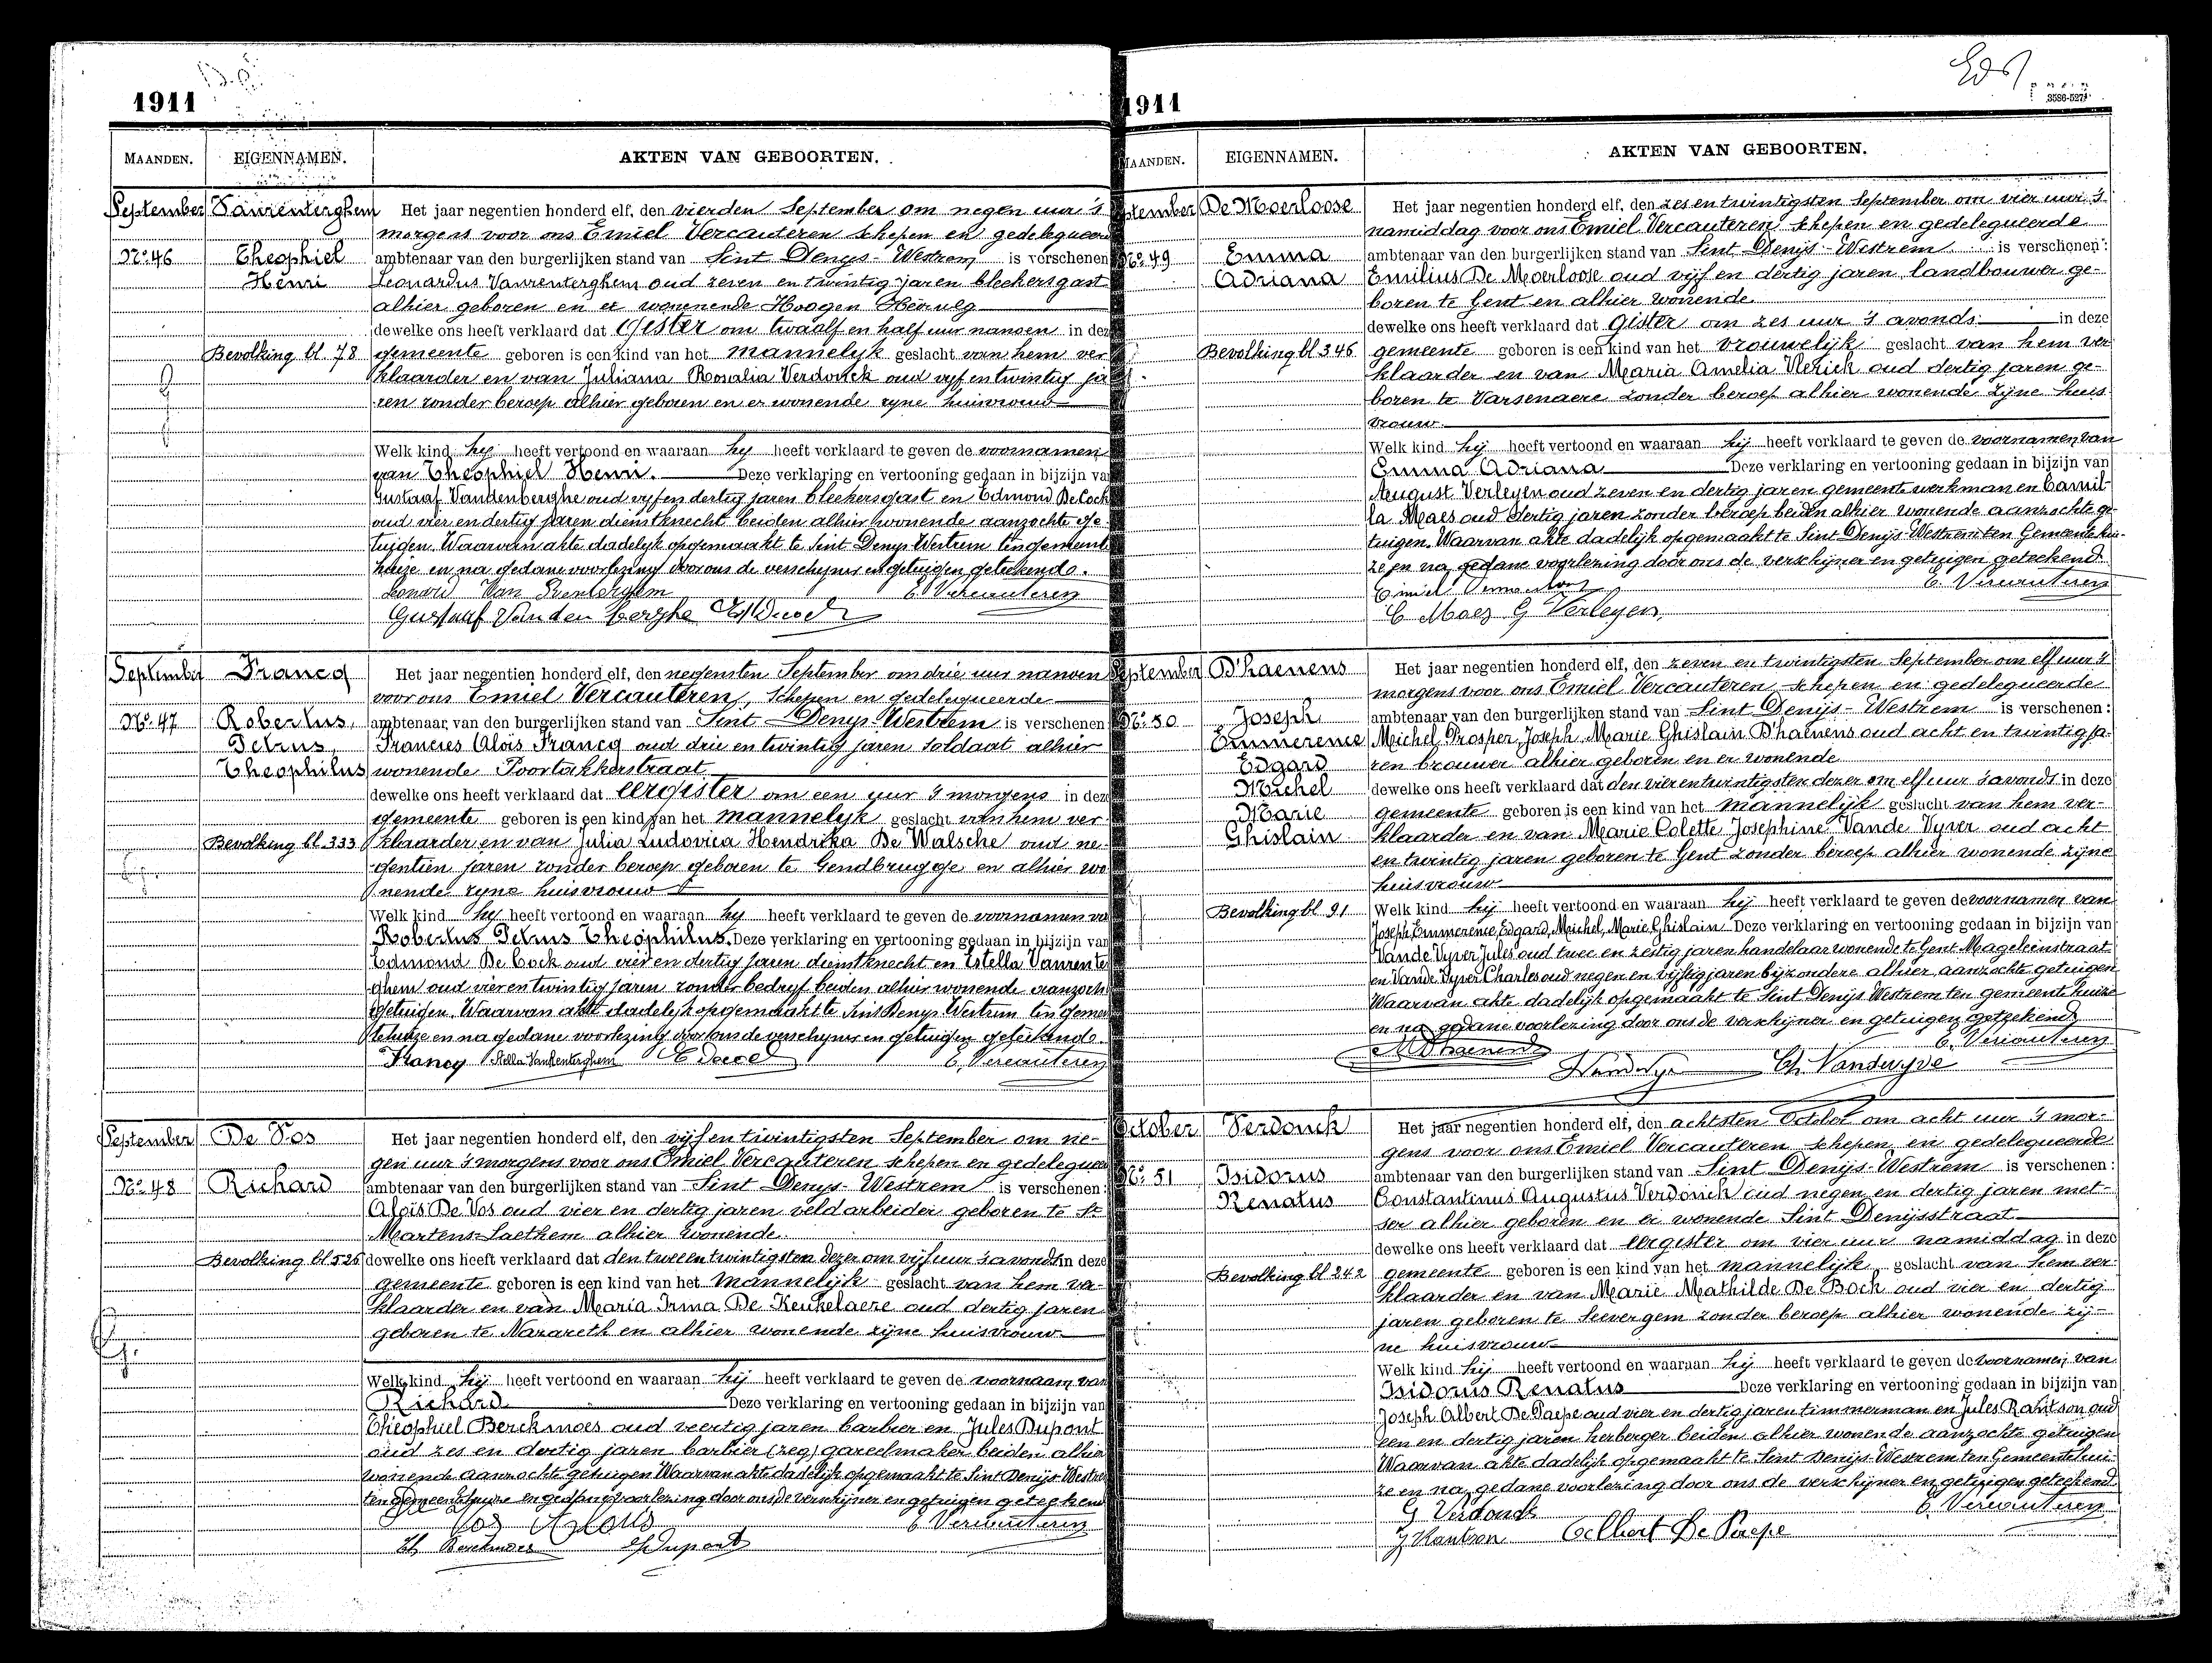 1911
MAANDEN. EIGENNAMEN. AKTEN VAN GEBOORTEN.
September Vanrenterghem Het jaar negentien honderd elf, den vierden September om negen uur 's
morgens voor ons Emiel Vercauteren schepen en gedelegueer
No. 46 Theophiel ambtenaar van den burgerlijken stand van Sint Denys-Westrem is verschenen
Henri Leonardus Vanrenterghem oud zeven en twintig jaren bleekersgast
alhier geboren en er wonenende Hoogen Heirweg
dewelke ons heeft verklaard dat Gister om twaalf en half uur nanoen in deze
Bevolking bl. 78 gemeente geboren is een kind van het mannelyk geslacht van hem ver
klaarder en van Juliana Rosalia Verdonck oud vyf en twintig ja
ren zonder beroep alhier geboren en er wonende zyne huisvrouw
Welk kind hy heeft vertoond en waaraan hy heeft verklaard te geven de voornamen
van Theophiel Henri. Deze verklaring en vertooning gedaan in bijzijn van
Gustaaf Vandenberghe oud vyf en dertig jaren bleekersgast en Edmond De Cock
oud vier en dertig jaren dienstknecht beiden alhier wonende aanzochte ge
tuigen. Waarvan akte dadelyk opgemaakt te Sint Denys Westrem ten gemeente
huize en na gedane voorlezing door ons de verschyner en getuigen geteekend.
Leonard Van Renterghem E. Vercauteren
Gustaaf Vanden berghe
September Francq Het jaar negentien honderd elf, den negensten September om drie uur nanoen
voor ons Emiel Vercauteren, Schepen en gedelegueerde
No. 47 Robertus, ambtenaar van den burgerlijken stand van Sint Denys Westrem is verschenen
Petrus, Francies Aloïs Francq oud drie en twintig jaren soldaat alhier
Theophilus wonende Poortakkerstraat
dewelke ons heeft verklaard dat eergister om een uur 's morgens in deze
gemeente geboren is een kind van het mannelyk geslacht van hem ver
Bevolking bl. 333 klaarder en van Julia Ludovica Hendrika De Walsche oud ne
gentien jaren zonder beroep geboren te Gendbrugge en alhier wo
nende zyne huisvrouw
Welk kind hy heeft vertoond en waaraan hy heeft verklaard te geven de voornamen va
Robertus Petrus Theophilus. Deze verklaring en vertooning gedaan in bijzijn van
Edmond De Cock oud vier en dertig jaren dienstknecht en Estella Vanrenter
ghem oud vier en twintig jaren zonder bedryf beiden alhier wonende aanzoch
getuigen. Waarvan akte dadelyk opgemaakt te Sint Denys Westrem ten gemee
tehuize en na gedane voorlezing door ons de verschyner en getuigen geteekend.
Francq Stella Vanrenterghem E. Vercauteren
September De Vos Het jaar negentien honderd elf, den vijf en twintigsten September om ne-
gen uur 's morgens voor ons Emiel Vercauteren schepen en gedeleguee
No. 48 Richard ambtenaar van den burgerlijken stand van Sint Denys-Westrem is verschenen:
Aloïs De Vos oud vier en dertig jaren veldarbeider geboren te St
Martens-Laethem alhier wonende.
Bevolking bl 526 dewelke ons heeft verklaard dat den tweeentwintigsten dezer om vijf uur 's avonds in deze
gemeente geboren is een kind van het mannelijk geslacht van hem ver-
klaarder en van Maria Irma De Keukelaere oud dertig jaren
geboren te Nazareth en alhier wonende zijne huisvrouw
Welk kind hij heeft vertoond en waaraan hij heeft verklaard te geven de voornaam van
Richard Deze verklaring en vertooning gedaan in bijzijn van
Theophiel Berckmoes oud veertig jaren barbier en Jules Dupont
oud zes en dertig jaren barbier (zeg) gareelmaker beiden alhier
wonende aanzochte getuigen Waarvan akte dadelijk opgemaakt te Sint Denijs-Westre
ten gemeentehuize en gedane voorlezing door ons de verschijner en getuigen geteekend
Vos Aloïs E. Vercauteren
Th Berckmoes J Dupont
1911
3586-527
MAANDEN. EIGENNAMEN. AKTEN VAN GEBOORTEN.
ptember De Moerloose Het jaar negentien honderd elf, den zes en twintigsten September om vier uur 's
namiddag voor ons Emiel Vercauteren schepen en gedelegueerde
No. 49 Emma ambtenaar van den burgerlijken stand van Sint Denijs-Westrem is verschenen:
Adriana Emilius De Moerloose oud vijf en dertig jaren landbouwer ge-
boren te Gent en alhier wonende
dewelke ons heeft verklaard dat gister om zes uur 's avonds in deze
Bevolking bl 346 gemeente geboren is een kind van het vrouwelijk geslacht van hem ver
klaarder en van Maria Amelia Vlerick oud dertig jaren ge-
boren te Varsenaere zonder beroep alhier wonende zijne huis
vrouw
Welk kind hij heeft vertoond en waaraan hij heeft verklaard te geven de voornamen van
Emma Adriana Deze verklaring en vertooning gedaan in bijzijn van
August Verleyen oud zeven en dertig jaren gemeente werkman en Camil-
la Maes oud dertig jaren zonder beroep beiden alhier wonende aanzochte ge-
tuigen. Waarvan akte dadelijk opgemaakt te Sint Denijs-Westrem ten Gemeentehui-
ze en na gedane voorlezing door ons de verschijner en getuigen geteekend
Emiel E. Vercauteren
C Maes G Verleyen
ptember D'haenens Het jaar negentien honderd elf, den zeven en twintigsten September om elf uur 's
morgens voor ons Emiel Vercauteren schepen en gedelegueerde
No. 50 Joseph ambtenaar van den burgerlijken stand van Sint Denijs-Westrem is verschenen:
Emmerence Michel Prosper, Joseph, Marie Ghislain D'haenens oud acht en twintig ja-
Edgard ren brouwer alhier geboren en er wonende
Michel dewelke ons heeft verklaard dat den vierentwintigsten dezer om elf uur 's avonds in deze
Marie gemeente geboren is een kind van het mannelijk geslacht van hem ver-
Ghislain klaarder en van Marie Colette Josephine Vande Vyver oud acht
en twintig jaren geboren te Gent zonder beroep alhier wonende zijne
huisvrouw
Bevolking bl 91 Welk kind hij heeft vertoond en waaraan hij heeft verklaard te geven de voornamen van
Joseph, Emmerence, Edgard, Michel, Marie, Ghislain Deze verklaring en vertooning gedaan in bijzijn van
Vande Vyver Jules oud twee en zestig jaren handelaar wonende te Gent Mageleinstraat
en Vande Vyver Charles oud negen en vijftig jaren bijzondere alhier, aanzochte getuigen
Waarvan akte dadelijk opgemaakt te Sint Denijs Westrem ten gemeentehuize
en na gedane voorlezing door ons de verschijner en getuigen geteekend
M Dhaenens E. Vercauteren
Ch. Vandevyve
October Verdonck Het jaar negentien honderd elf, den achtsten October om acht uur 's mor-
gens voor ons Emiel Vercauteren schepen en gedelegueerde
No. 51 Isidorus ambtenaar van den burgerlijken stand van Sint Denijs-Westrem is verschenen:
Renatus Constantinus Augustus Verdonck oud negen en dertig jaren met-
ser alhier geboren en er wonende Sint Denijsstraat
dewelke ons heeft verklaard dat eergister om vier uur namiddag in deze
Bevolking bl 242 gemeente geboren is een kind van het mannelijk geslacht van hem ver-
klaarder en van Marie Mathilde De Bock oud vier en dertig
jaren geboren te Seevergem zonder beroep alhier wonende zij-
ne huisvrouw
Welk kind hij heeft vertoond en waaraan hij heeft verklaard te geven de voornamen van
Isidorus Renatus Deze verklaring en vertooning gedaan in bijzijn van
Joseph Albert De Paepe oud vier en dertig jaren timmerman en Jules Rantson oud
een en dertig jaren herberger beiden alhier wonende aanzochte getuigen
Waarvan akte dadelijk opgemaakt te Sint Denijs-Westrem ten Gemeentehui-
ze en na gedane voorlezing door ons de verschijner en getuigen geteekend
G Verdonck E. Vercauteren
J Rantson Albert De Paepe